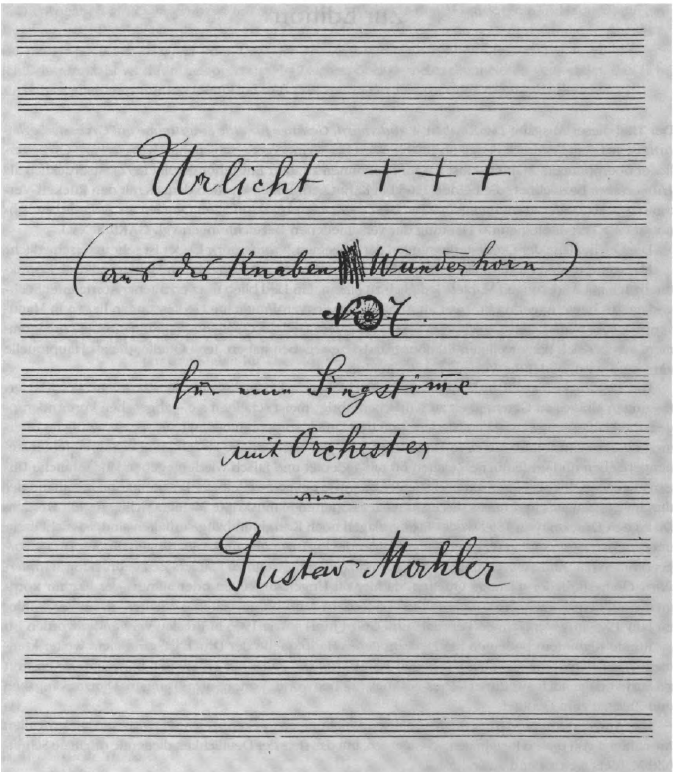 Urlicht + + +
(aus des Knaben Wunderhorn)
No 7.
für eine Singstim̅e
mit Orchester
von
Gustav Mahler